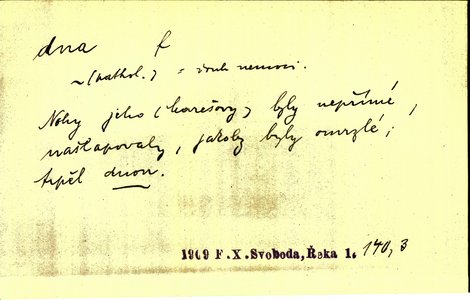 dna f
~ (pathol.) = druh nemoci.
Nohy jeho (Karešovy) byly nepřímé,
našlapovaly, jakoby byly omrzlé;
trpěl dnou.
1909 F.X.Svoboda, Řeka 1. 140,3